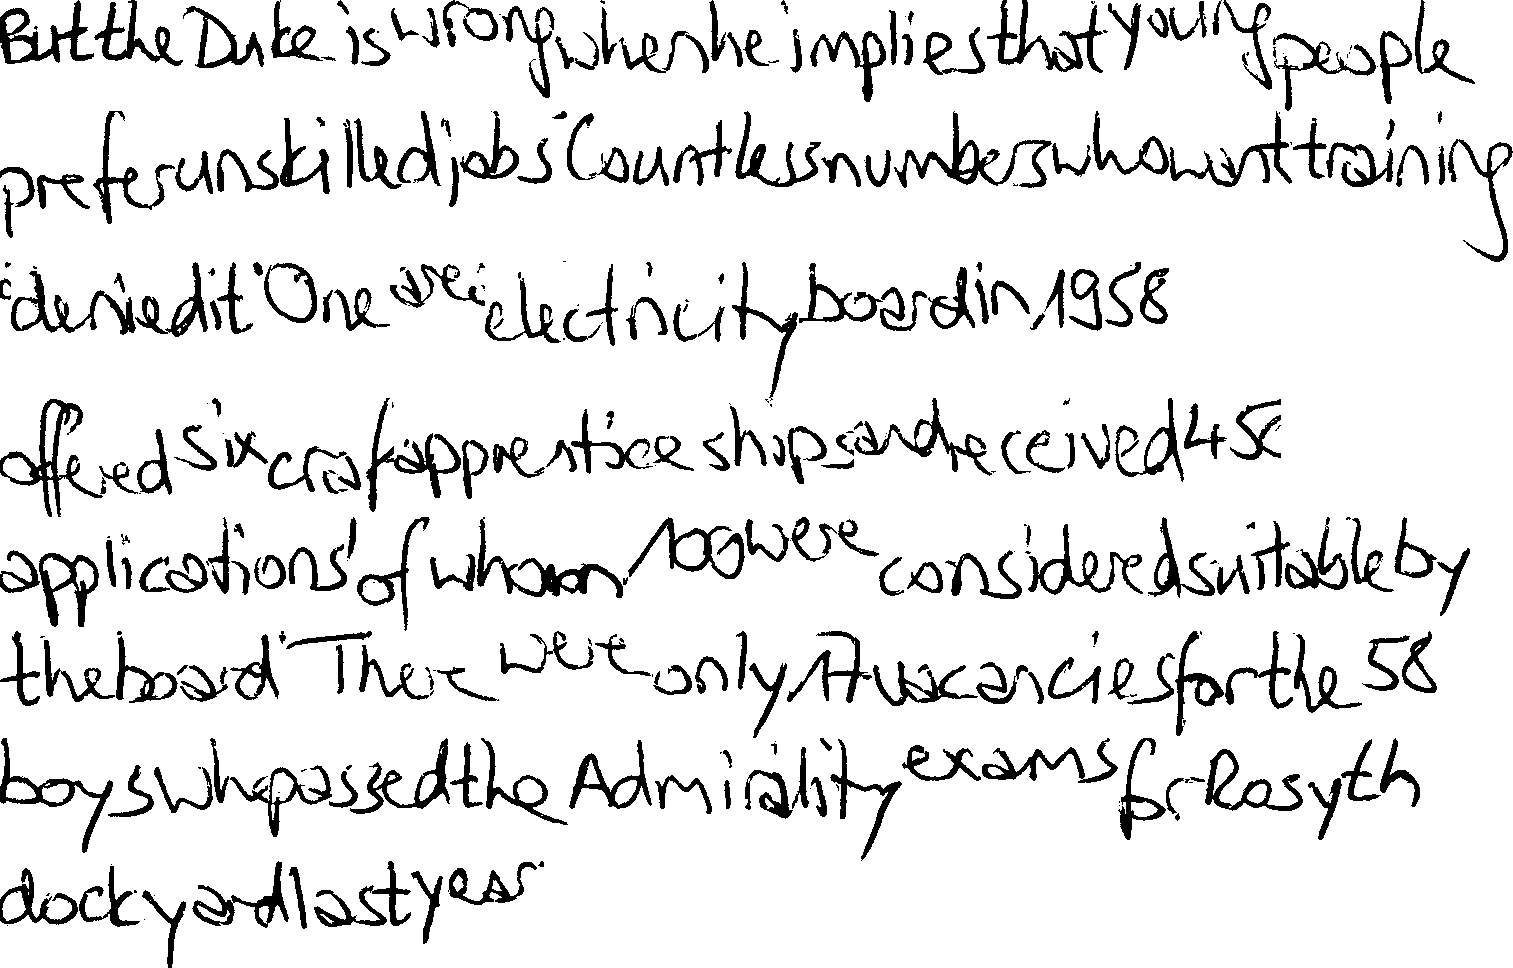 But the Duke is wrong when he implies that young people
prefer unskilled jobs. Countless numbers who want training
denied it. One area electricity board in, 1958
offered six craft apprenticeships and received 450
applications of whom, 100 were considered suitable by
the board. There were only 17 vacancies for the 58
boys who passed the Admirality exams for Rosyth
dockyard last year.